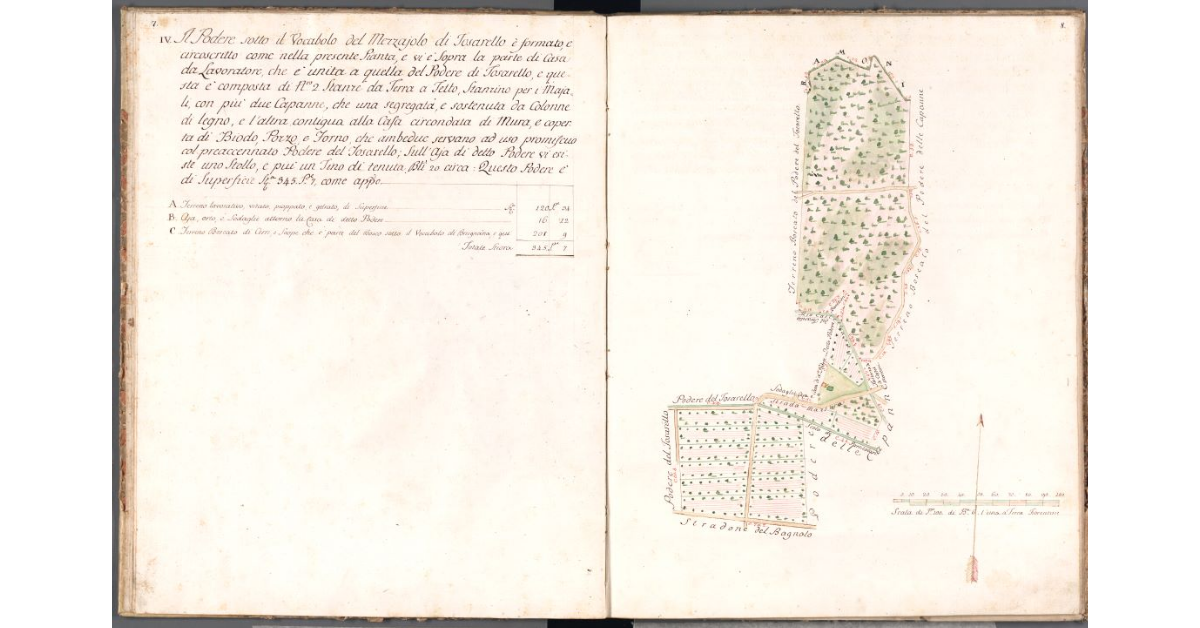 7.
IV. Il Podere sotto il Vocabolo del Merzajolo di Tosarello è formato, e
circoscritto come nella presente Pianta, e vi è sopra la parte di Casa
da Lavoratore, che è unita a quella del Podere di Tosarello, e que-
sta è composta di N.º 2 Stanze da Terra a Tetto, Stamino per i Maja-
li, con più due Capanne, che una segregata, e sostenuta da Colonne
di legno, e l'altra contigua alla Casa circondata di Mura, e coper-
ta di Biodo, Pozzo, e Forno, che ambedue servano ad uso promiscuo
col preaccennato Podere del Tosarello; Sull'Aja di detto Podere vi esi-
ste uno Stollo, e più un Tino di tenuta, 20 circa: Questo Podere e'
di Superficie 343. 7, come appo
A Terreno lavorativo, vitato, pioppato, e gelsato, di Superficie 120 24
B. Aja, orto, e Sodaglie attorno la Casa di detto Podere 16 22
C Terreno Boscato di Cerri, e Scope che è parte del Masco sotto il Vocabolo di 201 9
Totale 343 7
8.
RAMONI
Terreno Boscato del Podere del Tosarello
Terreno Boscato del Podere delle Capanne
Podere del Tosarello
Strada
Podere del Tosarello
Podere delle Capanne
Stradone del Bagnolo
10 20 30 40 50 60 70 80 90 100
Scala di di B.ª 6 l'una a Panno Fiorentino